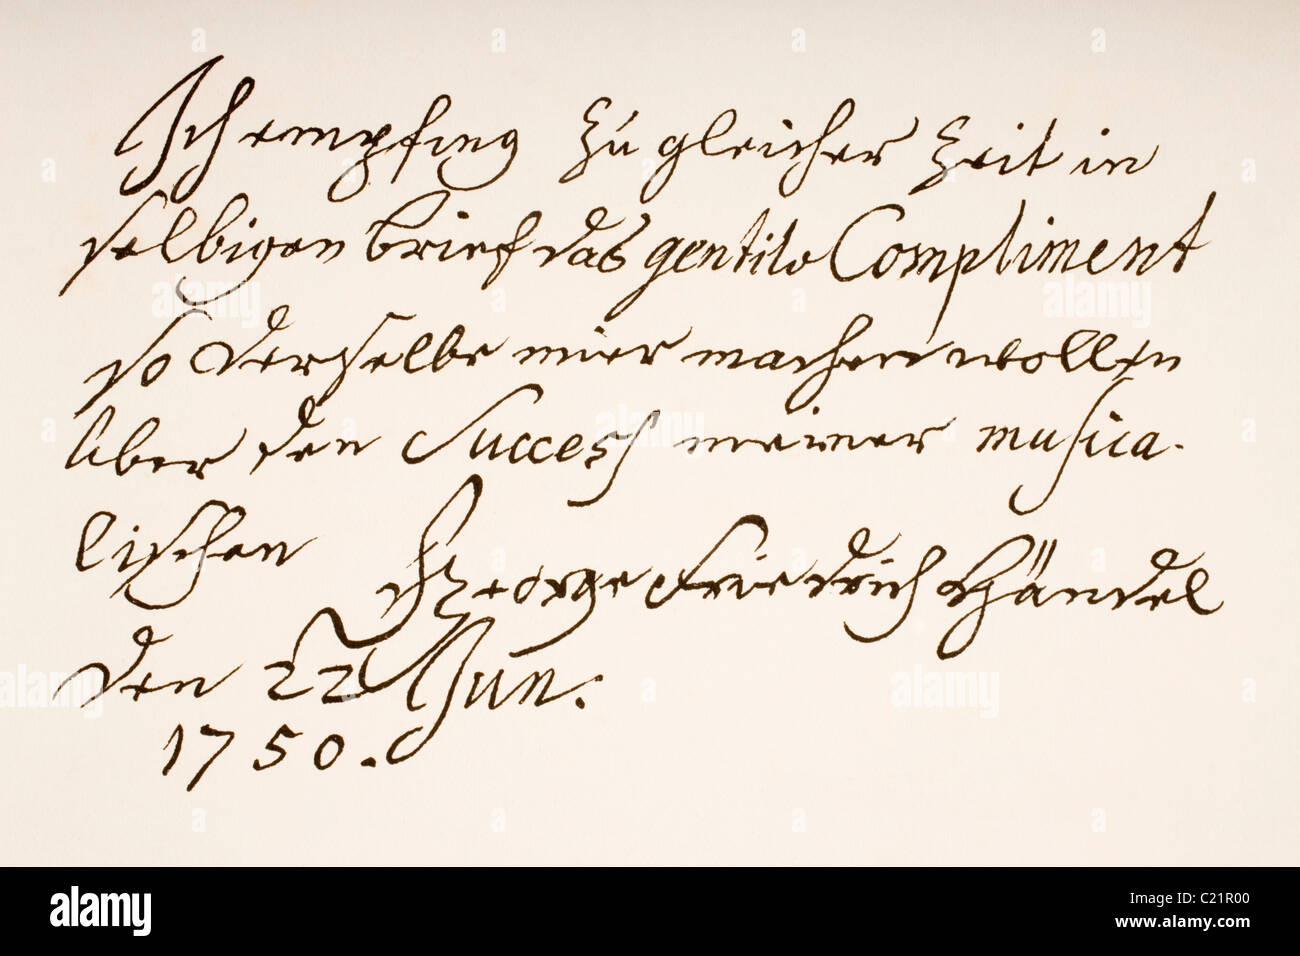 Ich empfing zu gleicher Zeit in
selbigen brief das gentile Compliment
so derselbe mier machen wollen
über den Success meiner musica-
lischen
George Friedrich Händel
den 22 Jun:
1750.
alamy
Image ID: C21R00
www.alamy.com